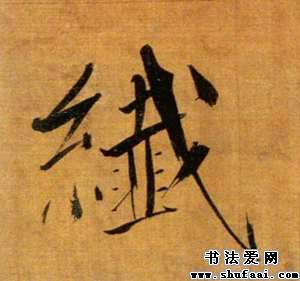 纖
书法爱网
www.shufaai.com